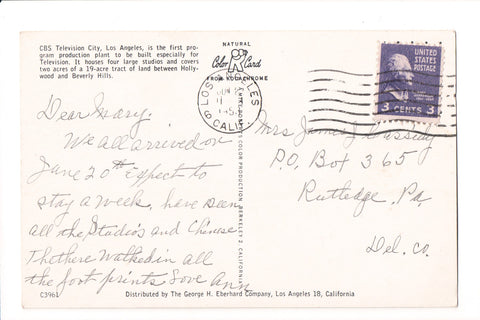 CBS Television City, Los Angeles, is the first pro-
gram production plant to be built especially for
Television. It houses four large studios and covers
two acres of a 19-acre tract of land between Holly-
wood and Beverly Hills.
NATURAL
Color Card
FROM KODACHROME
LOS ANGELES
CALIF
UNITED
STATES
POSTAGE
3 CENTS 3
Dear Mary.
We all arrived on
June 20th expect to
stay a week, have seen
all the Studio's and Chinese
Thethere Walked in all
the foot prints Love Ann
Mrs James J. Cassidy
P.O. Box 365
Rutledge, Pa
Del. Co.
COLOR PRODUCTION BERKELEY 2 CALIFORNIA
C3961
Distributed by The George H. Eberhard Company, Los Angeles 18, California